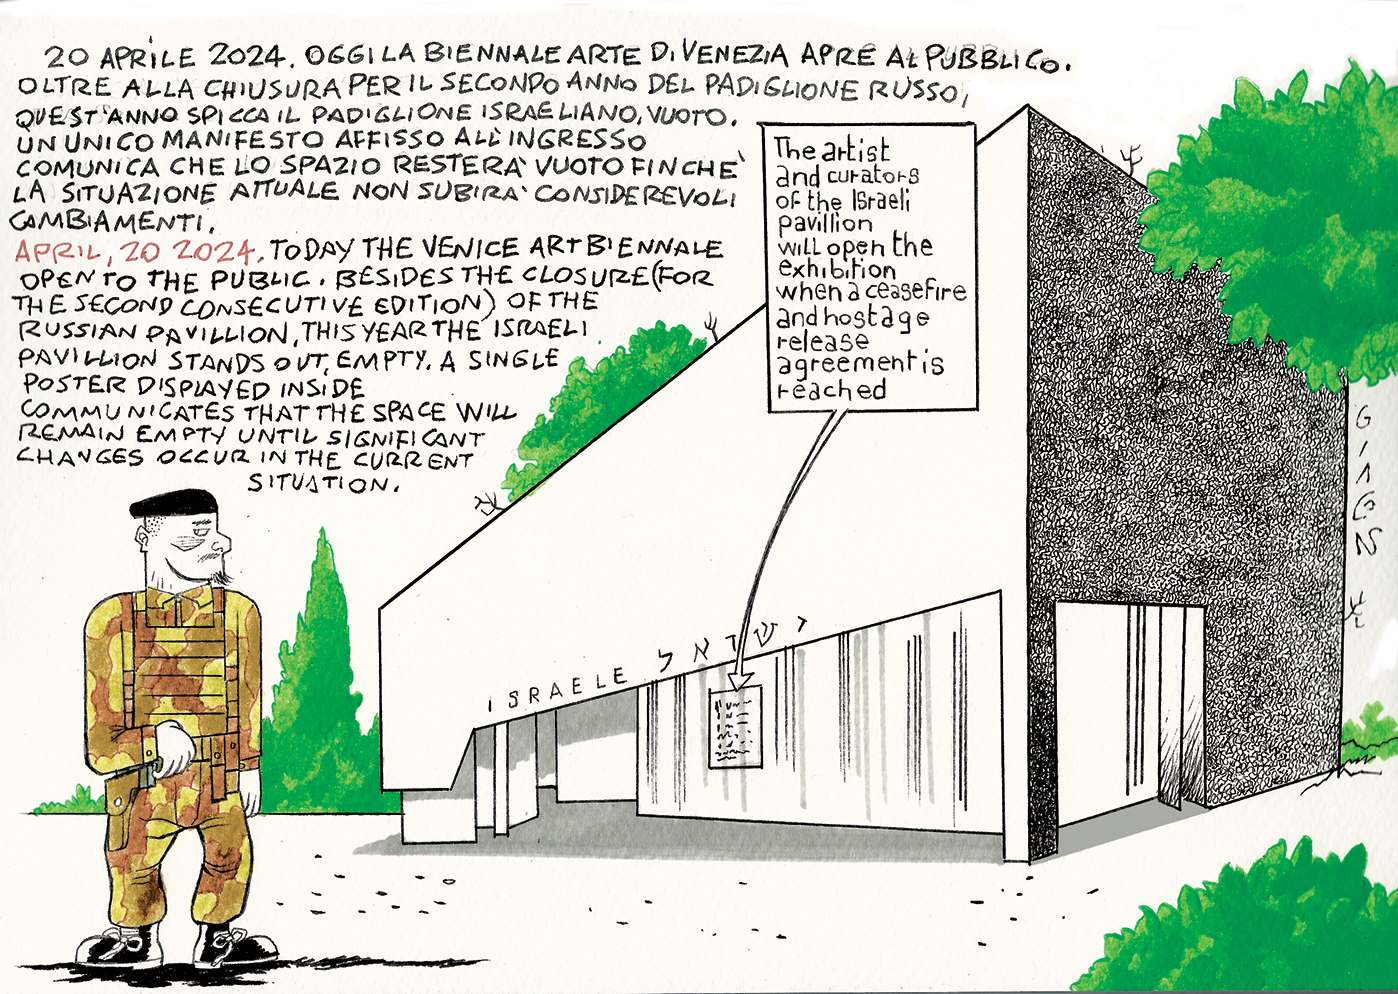 20 APRILE 2024. OGGI LA BIENNALE ARTE DI VENEZIA APRE AL PUBBLICO.
OLTRE ALLA CHIUSURA PER IL SECONDO ANNO DEL PADIGLIONE RUSSO,
QUEST'ANNO SPICCA IL PADIGLIONE ISRAELIANO, VUOTO.
UN UNICO MANIFESTO AFFISSO ALL'INGRESSO
COMUNICA CHE LO SPAZIO RESTERA' VUOTO FINCHE'
LA SITUAZIONE ATTUALE NON SUBIRA' CONSIDEREVOLI
CAMBIAMENTI.
APRIL, 20 2024. TODAY THE VENICE ART BIENNALE
OPEN TO THE PUBLIC. BESIDES THE CLOSURE (FOR
THE SECOND CONSECUTIVE EDITION) OF THE
RUSSIAN PAVILLION, THIS YEAR THE ISRAELI
PAVILLION STANDS OUT, EMPTY. A SINGLE
POSTER DISPLAYED INSIDE
COMMUNICATES THAT THE SPACE WILL
REMAIN EMPTY UNTIL SIGNIFICANT
CHANGES OCCUR IN THE CURRENT
SITUATION.
The artist
and curators
of the Israeli
pavillion
will open the
exhibition
when a ceasefire
and hostage
release
agreement is
reached
ISRAELE ישראל